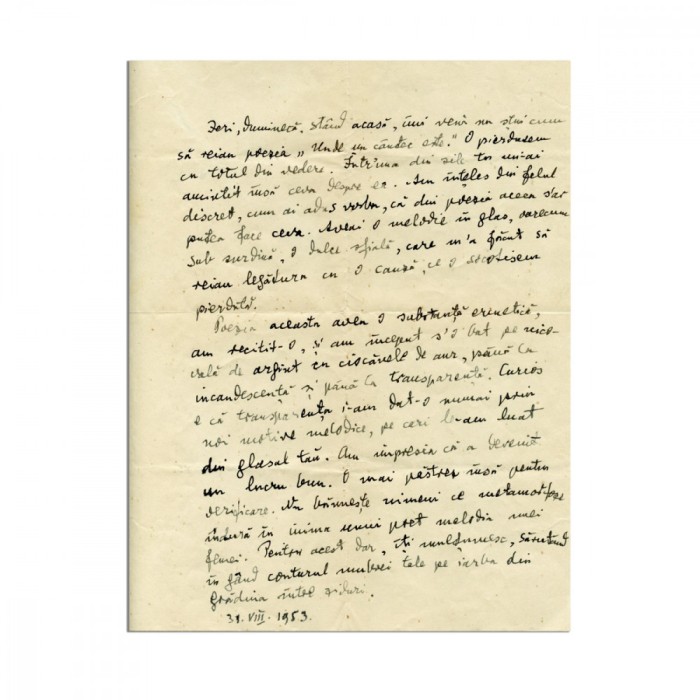 Ieri, Duminecă, stând acasă, îmi veni nu știu cum
să reiau poezia „Unde un cântec este." O pierdusem
cu totul din vedere. Într'una din zile tu mi-ai
amintit însă ceva despre ea. Am înțeles din felul
discret, cum ai adus vorba, că din poezia aceea s'ar
putea face ceva. Aveai o melodie în glas, oarecum
sub surdină, o dulce sfială, care m'a făcut să
reiau legătura cu o cauză, ce o socotisem
pierdută.
Poezia aceasta avea o substanță ermetică,
am recitit-o, și am început s'o bat pe nico-
vală de argint cu ciocănele de aur, până la
incandescență și până la transparență. Curios
e că transparența i-am dat-o numai prin
noi motive melodice, pe cari le-am luat
din glasul tău. Am impresia că a devenit
un lucru bun. O mai păstrez însă pentru
verificare. Nu bănuește nimeni ce metamorfoze
îndură în inima unui poet melodia unei
femei. Pentru acest dar, îți mulțumesc, sărutând
în gând conturul umbrei tale pe iarba din
grădina între ziduri.
31. VIII. 1953.